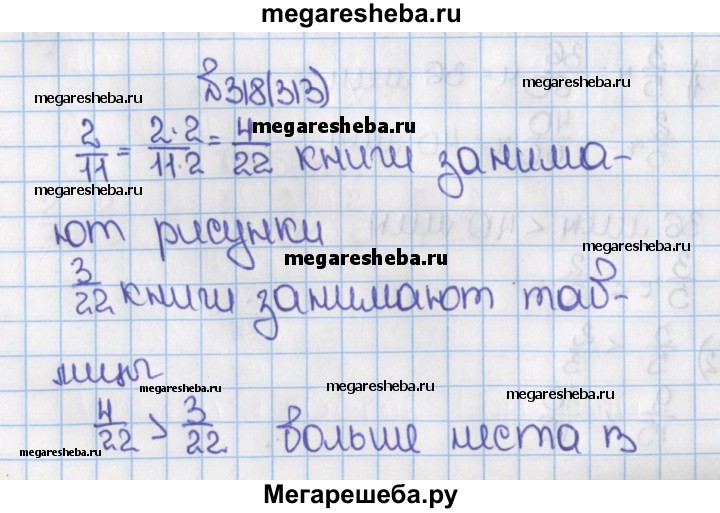 megaresheba.ru
№318(313)
megaresheba.ru megaresheba.ru
megaresheba.ru
2/11 = 2·2/11·2 = 4/22 книги занима-
megaresheba.ru
ют рисунки
megaresheba.ru megaresheba.ru
3/22 книги занимают таб-
лицы
megaresheba.ru megaresheba.ru megaresheba.ru
4/22 > 3/22 больше места в
megaresheba.ru megaresheba.ru
Мегарешеба.ру